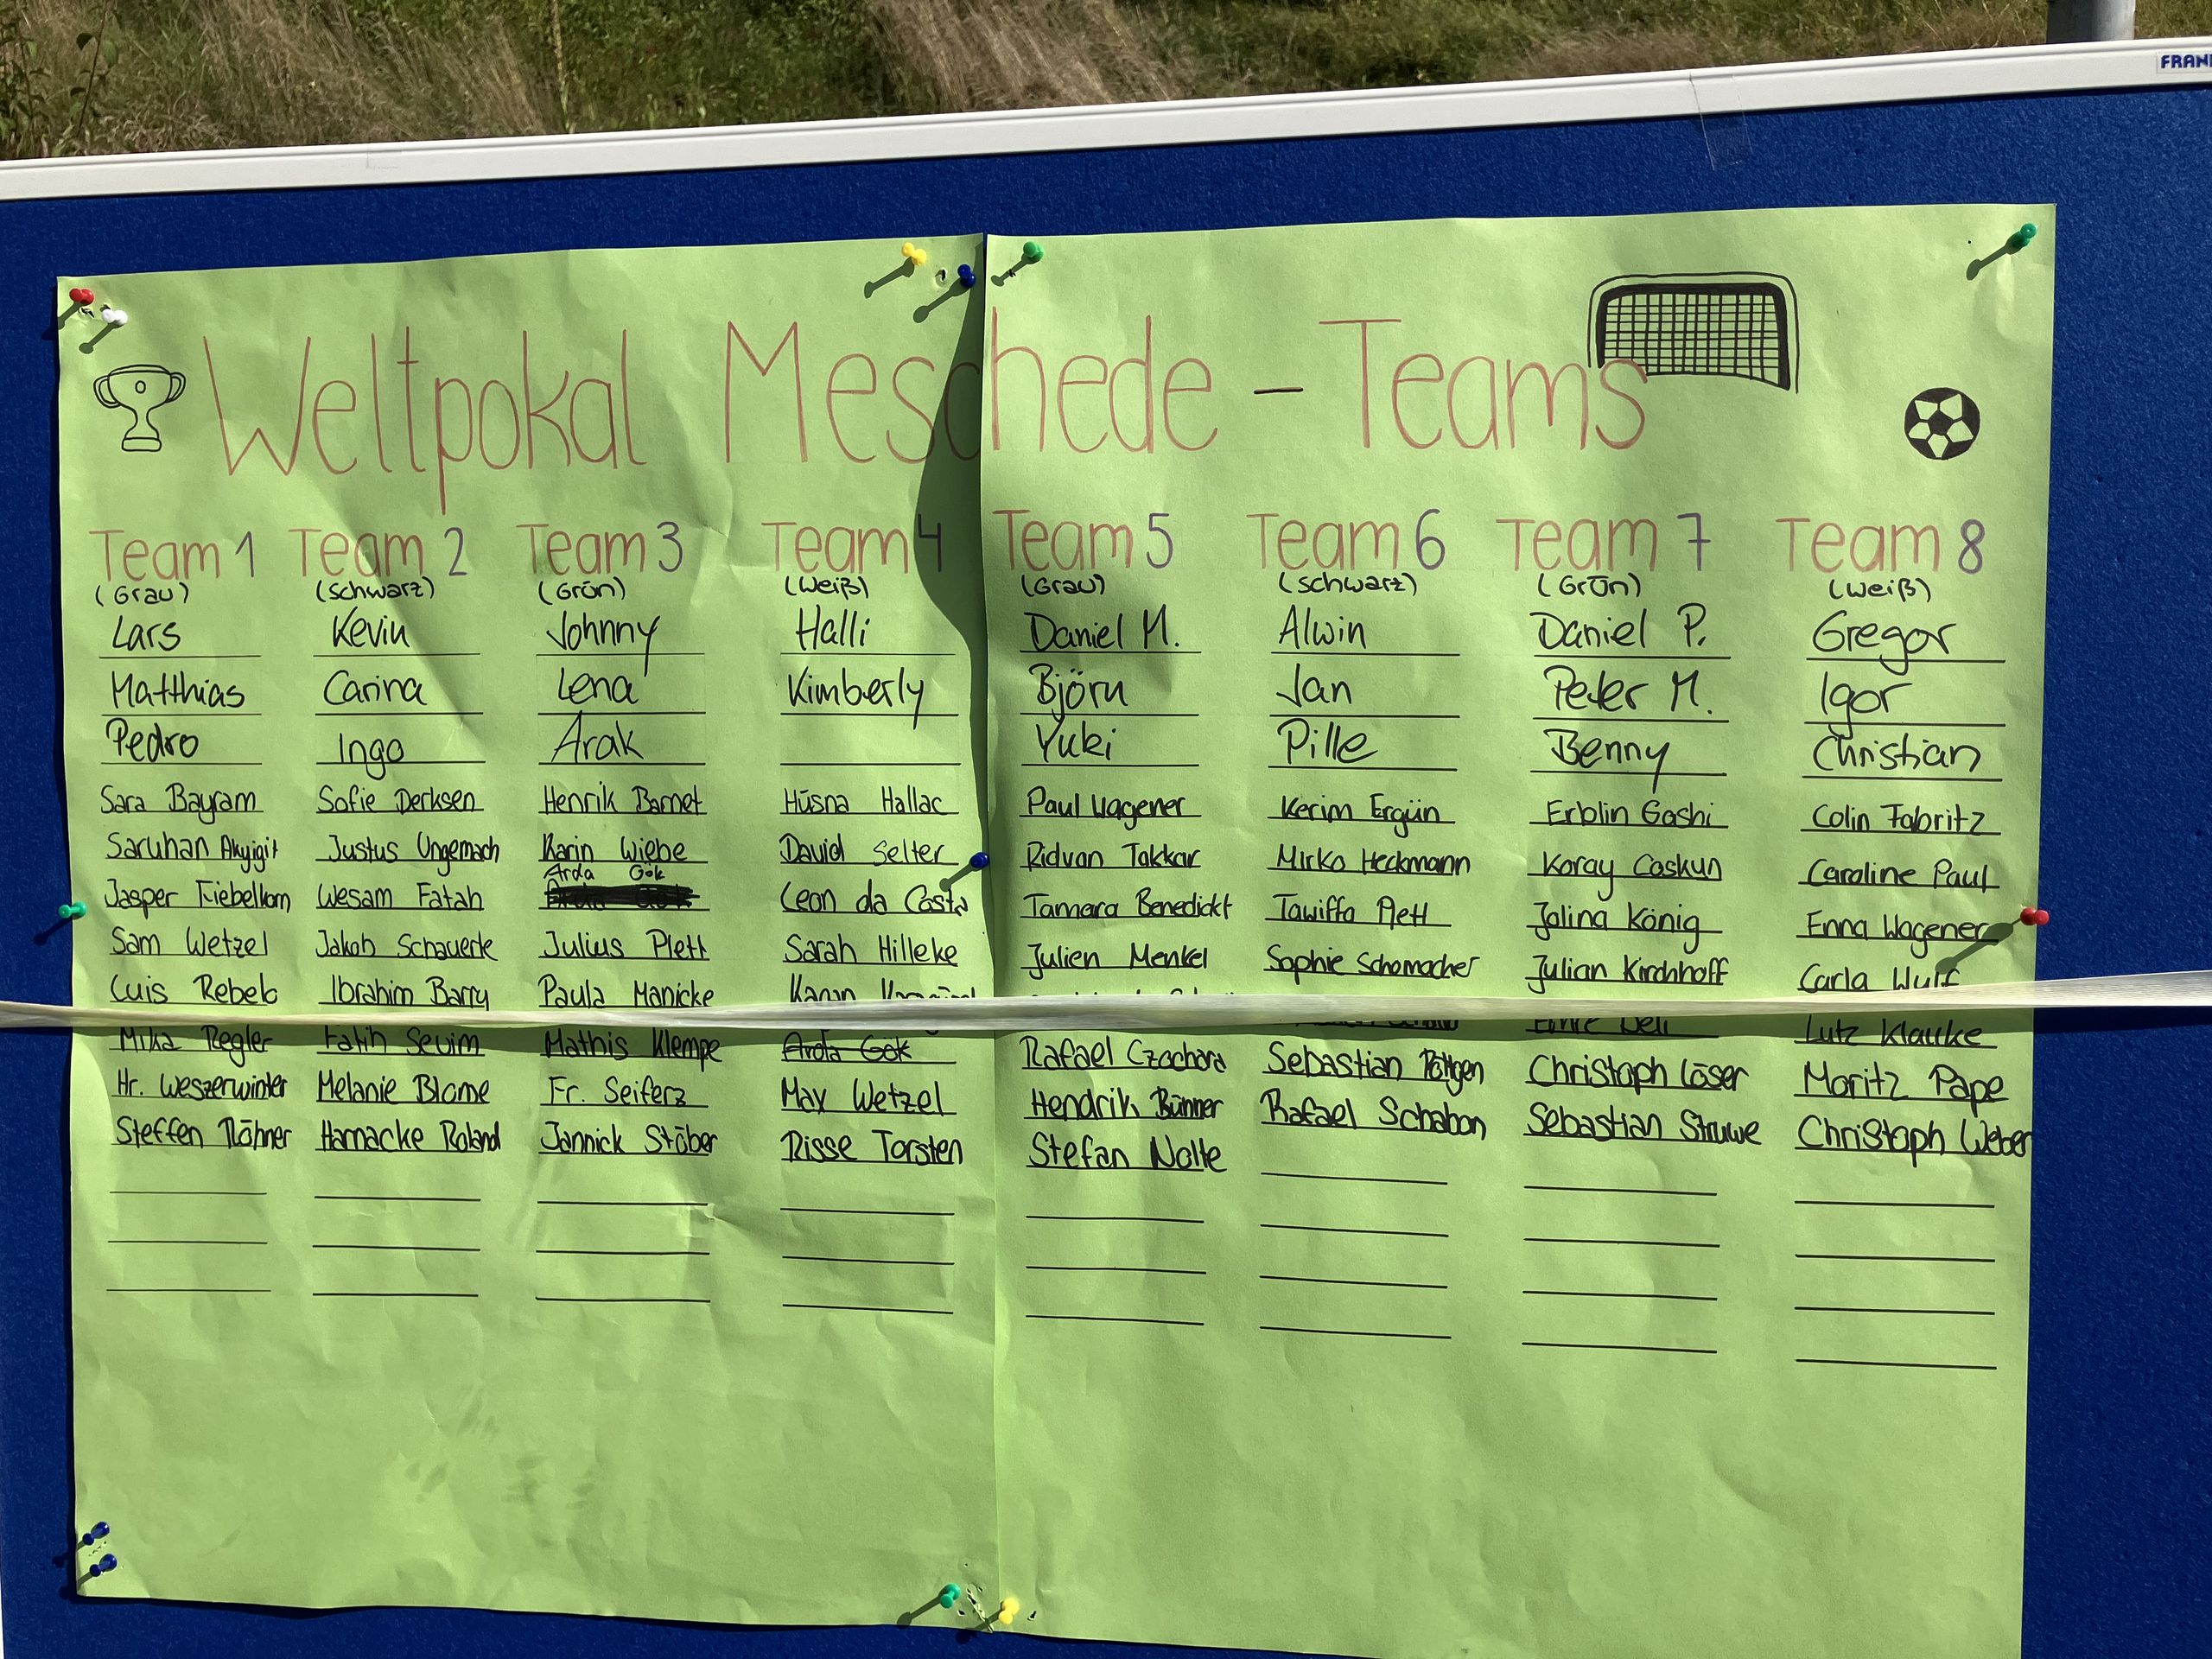 FRAN
Weltpokal Meschede - Teams
Team 1
(Grau)
Lars
Matthias
Pedro
Sara Bayram
Saruhan Akyigit
Jasper Fiebelkorn
Sam Wetzel
Luis Rebelo
Mika Regler
Hr. Weszerwinter
Steffen Röhner
Team 2
(Schwarz)
Kevin
Carina
Ingo
Sofie Derksen
Justus Ungemach
Wesam Fatah
Jakob Schauerte
Ibrahim Barry
Fatih Sevim
Melanie Blome
Harnacke Roland
Team 3
(Grün)
Johnny
Lena
Arak
Henrik Barnet
Karin Wiebe
Arda Gök
Julius Plett
Paula Manicke
Mathis Klempe
Fr. Seiferz
Jannick Stöber
Team 4
(Weiß)
Halli
Kimberly
Hüsna Hallac
David Selter
Leon da Costa
Sarah Hilleke
Arda Gök
Max Wetzel
Risse Torsten
Team 5
(Grau)
Daniel M.
Björn
Yuki
Paul Wagener
Ridvan Takkac
Tamara Benedickt
Julien Menkel
Rafael Czochara
Hendrik Bünner
Stefan Nolte
Team 6
(Schwarz)
Alwin
Jan
Pille
Kerim Ergün
Mirko Heckmann
Tawiffa Plett
Sophie Schomacher
Sebastian Röttgen
Rafael Schabon
Team 7
(Grün)
Daniel P.
Peter M.
Benny
Erblin Gashi
Koray Coskun
Jolina König
Julian Kirchhoff
Christoph Löser
Sebastian Struwe
Team 8
(Weiß)
Gregor
Igor
Christian
Colin Fabritz
Caroline Paul
Enna Wagener
Carla Wulf
Lutz Klaucke
Moritz Pape
Christoph Weber